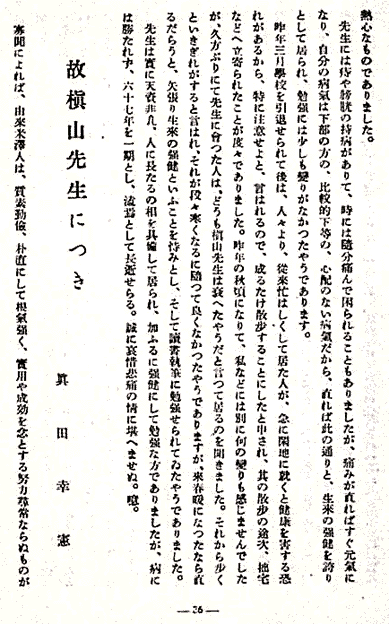 熱心なものでありました。
先生には痔や膀胱の持病がありて、時には隨分痛んで困られることもありましたが、痛みが直ればすぐ元氣に
なり、自分の病氣は下部の方の、比較的下等の、心配のない病氣だから、直れば此の通りと、生來の强健を誇り
として居られ、勉强には少しも變りがなかつたやうであります。
昨年三月學校を引退せられて後は、人々より、從來忙はしくして居た人が、急に閑地に就くと健康を害する恐
れがあるから、特に注意せよと、言はれるので、成るたけ散步することにしたと申され、其の散步の途次、拙宅
などへ立寄られたことが度々でありました。昨年の秋頃になりて、私などには別に何の變りも感じませんでした
が、久方ぶりにて先生に會つた人は、どうも槇山先生は衰へたやうだと言つて居るのを聞きました。それから步く
といきぎれがすると言はれ、それが段々寒くなるに隨つて良くなかつたやうでありますが、來春暖になつたなら直
るだらうと、矢張り生來の强健といふことを恃みとし、そして讀書執筆に勉强せられてゐたやうでありました。
先生は實に天資非凡、人に長たるの相を具備して居られ、加ふるに强健にして勉强な方でありましたが、病に
は勝たれず、六十七年を一期とし、溘焉として長逝せらる。誠に哀惜悲痛の情に堪へませぬ。噫。
故槇山先生につき
眞田幸憲
寡聞によれば、由來米澤人は、質素勤儉、朴直にして根氣强く、實用や成効を念とする努力尋常ならぬものが
—26—